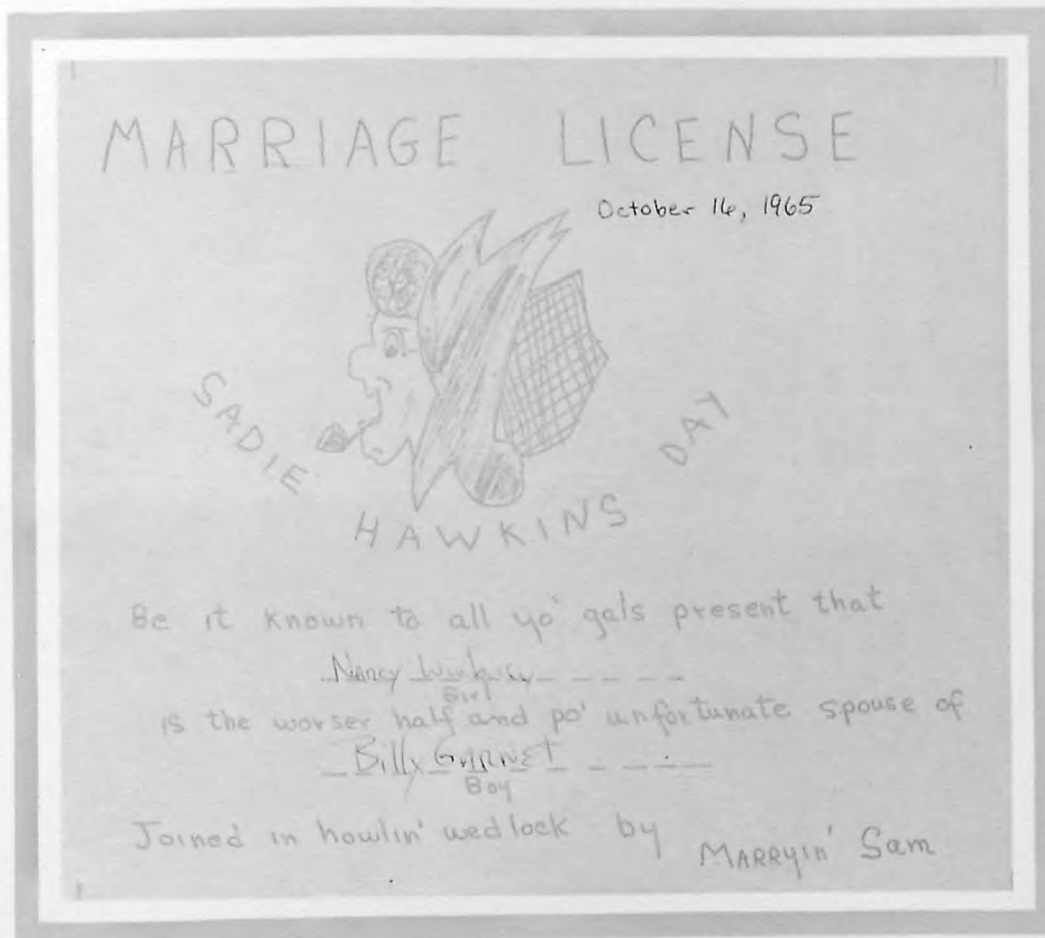 MARRIAGE LICENSE
October 16, 1965
SADIE HAWKINS DAY
Be it known to all yo' gals present that
Nancy
Girl
is the worser half and po' unfortunate spouse of
Billy GARNET
Boy
Joined in howlin' wedlock by MARRYin' Sam